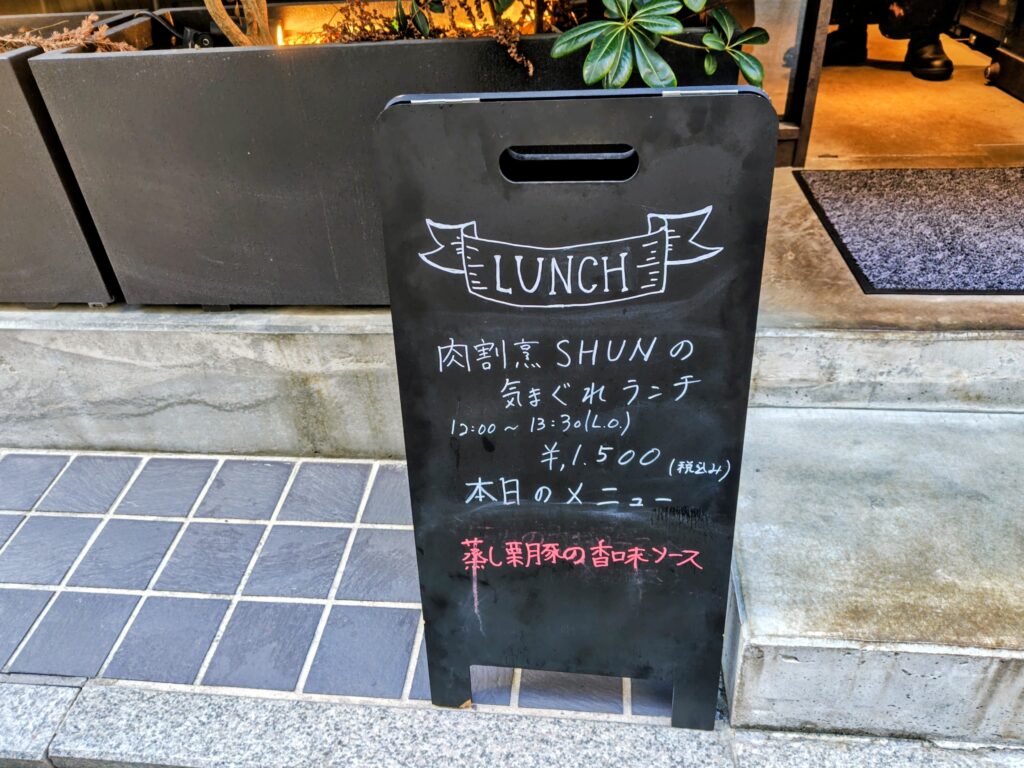 LUNCH
肉割烹 SHUNの
気まぐれ ランチ
12:00～13:30(L.O.)
¥,1.500(税込み)
本日のメニュー
蒸し栗豚の香味ソース